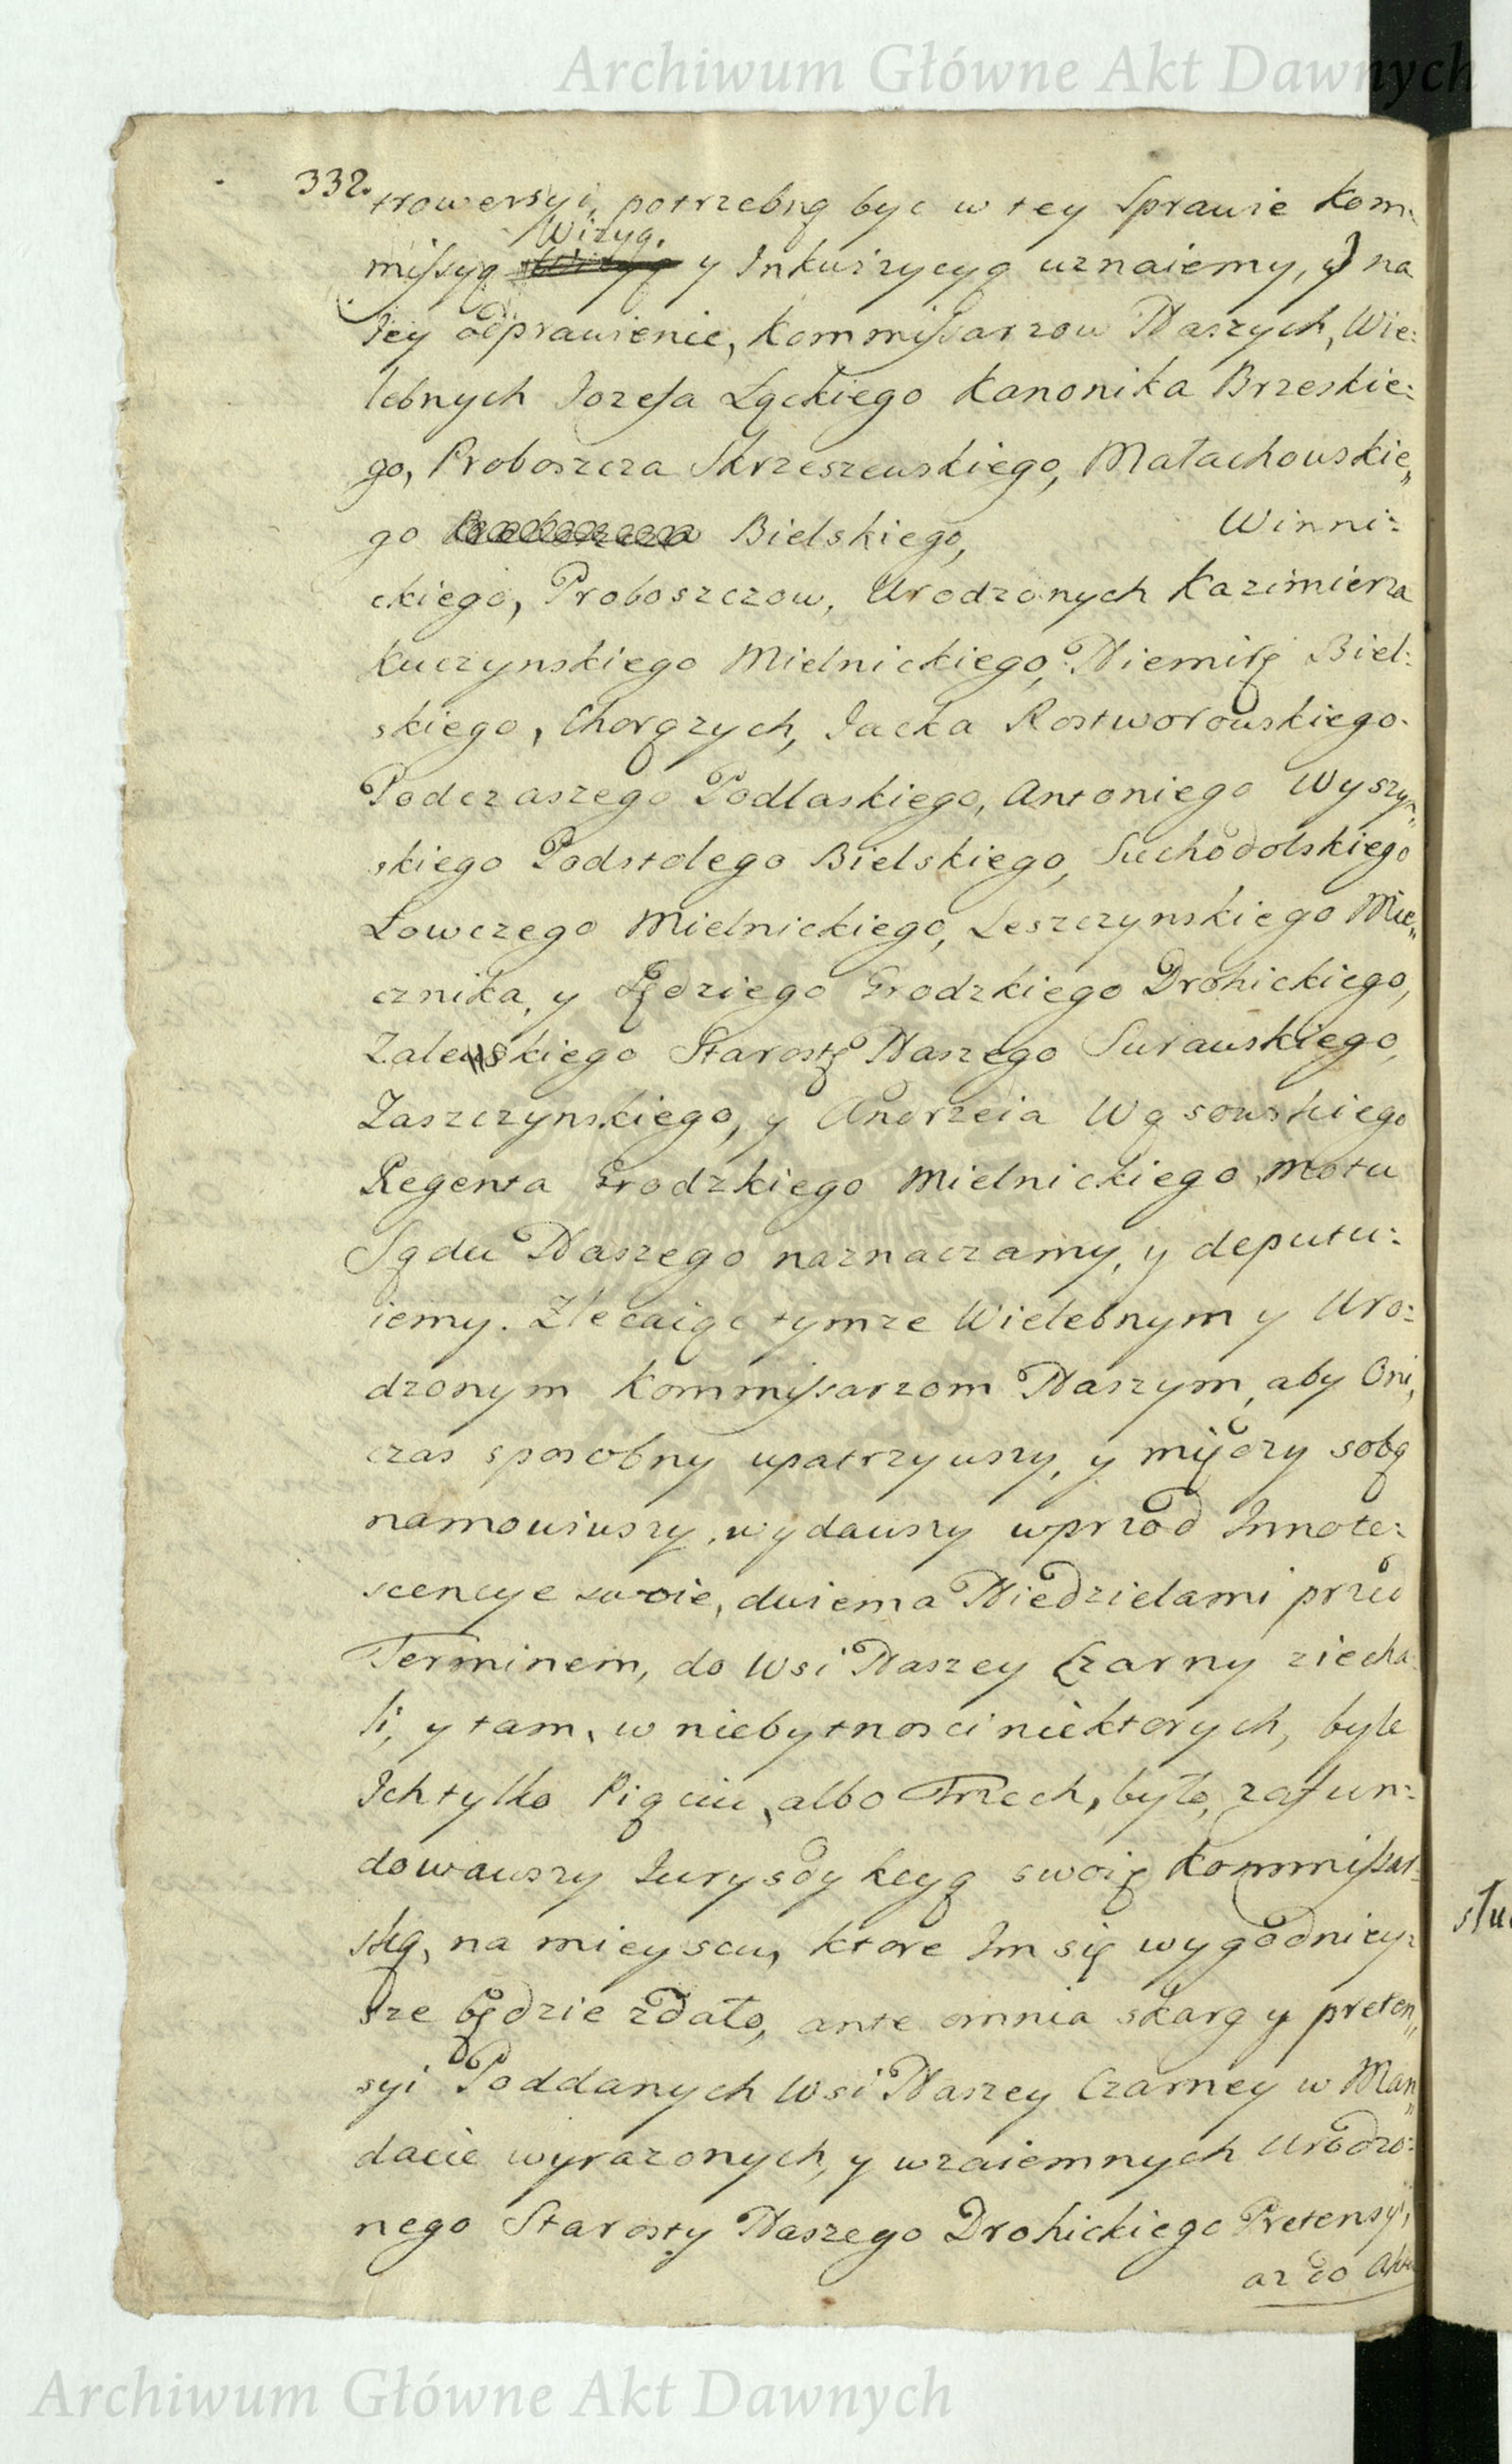 Archiwum Główne Akt Dawnych
332.
trowersyi, potrzebną byc w tey Sprawie Kom:
Wizyą.
missyą y Inkwizycyą uznaiemy, y na
Iey odprawienie, Kommissarzow Naszych, Wie:
lebnych Jozefa Łąckiego Kanonika Brzeskie:
go, Proboszcza Skrzeszewskiego, Małachowskie„
go Bielskiego, Winni:
ckiego, Proboszczow, Urodzonych Kazimierza
Kuczynskiego Mielnickiego, Niemirę Biel:
skiego, Chorązych, Jacka Rostworowskiego
Podczaszego Podlaskiego, Antoniego Wyszyn„
skiego Podstolego Bielskiego, Suchodolskiego
Łowczego Mielnickiego, Leszczynskiego Mie„
cznika, y Sędziego Grodzkiego Drohickiego,
Zalewskiego Starostę Naszego Surawskiego,
Zaszczynskiego, y Andrzeia Wąsowskiego
Regenta Grodzkiego Mielnickiego motu
Sądu Naszego naznaczamy, y deputu:
iemy. Zlecaiąc tymze Wielebnym y Uro:
dzonym Kommissarzom Naszym, aby Oni,
czas sposobny upatrzywszy, y między sobą
namowiwszy, wydawszy wprzod Innote:
scencye swoie, dwiema Niedzielami przed
Terminem, do Wsi Naszey Czarny ziecha:
li, y tam, w niebytnosci niektorych, byle
Ich tylko Pięciu, albo Trzech, było, zafun:
dowawszy Jurysdykcyą swoię Kommissar:
ską, na mieyscu, ktore Im się wygodniey:
sze będzie zdało, ante omnia skarg y preten„
syi Poddanych Wsi Naszey Czarney w Man„
dacie wyrazonych, y wzaiemnych Urodzo:
nego Starosty Naszego Drohickiego Pretensyi,
az do Aktu
stu
Archiwum Główne Akt Dawnych